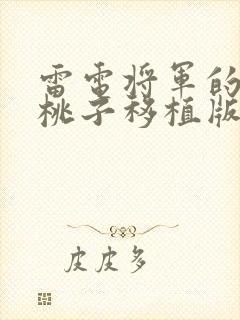 雷電将軍的
桃子移植版
皮皮多